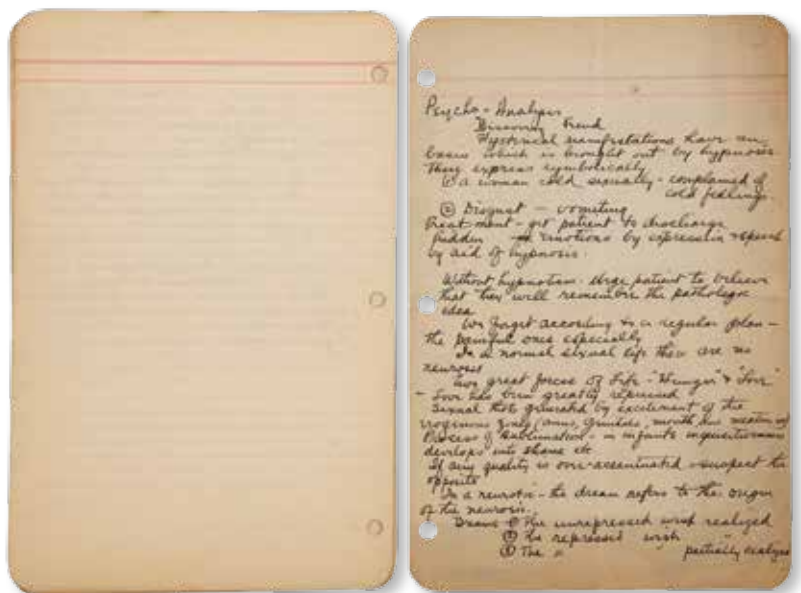 Psycho-Analysis
Discovery Freud
Hysterical manifestations have an
basis which is brought out by hypnosis.
They express symbolically
① a woman cold sexually - complained of
cold feelings.
② Disgust - vomiting
Treatment - get patient to discharge
hidden emotions by expression
by aid of hypnosis.
Without hypnotism. Urge patient to believe
that they will remember the pathologic
idea
We forget according to a regular plan -
the painful ones especially
In a normal sexual life there are no
neurosis
Two great forces of Life - "Hunger" & "Love"
- Love has been greatly repressed
Sexual thots generated by excitement of the
erogenous zones (anus, genitals, mouth
Process of Sublimation - in infants inquisitiveness
develops into shame etc
If any quality is over-accentuated - suspect the
opposite
In a neurotic - the dream refers to the origin
of the neurosis.
① The unrepressed wish realized
② The repressed wish
③ The " partially realized